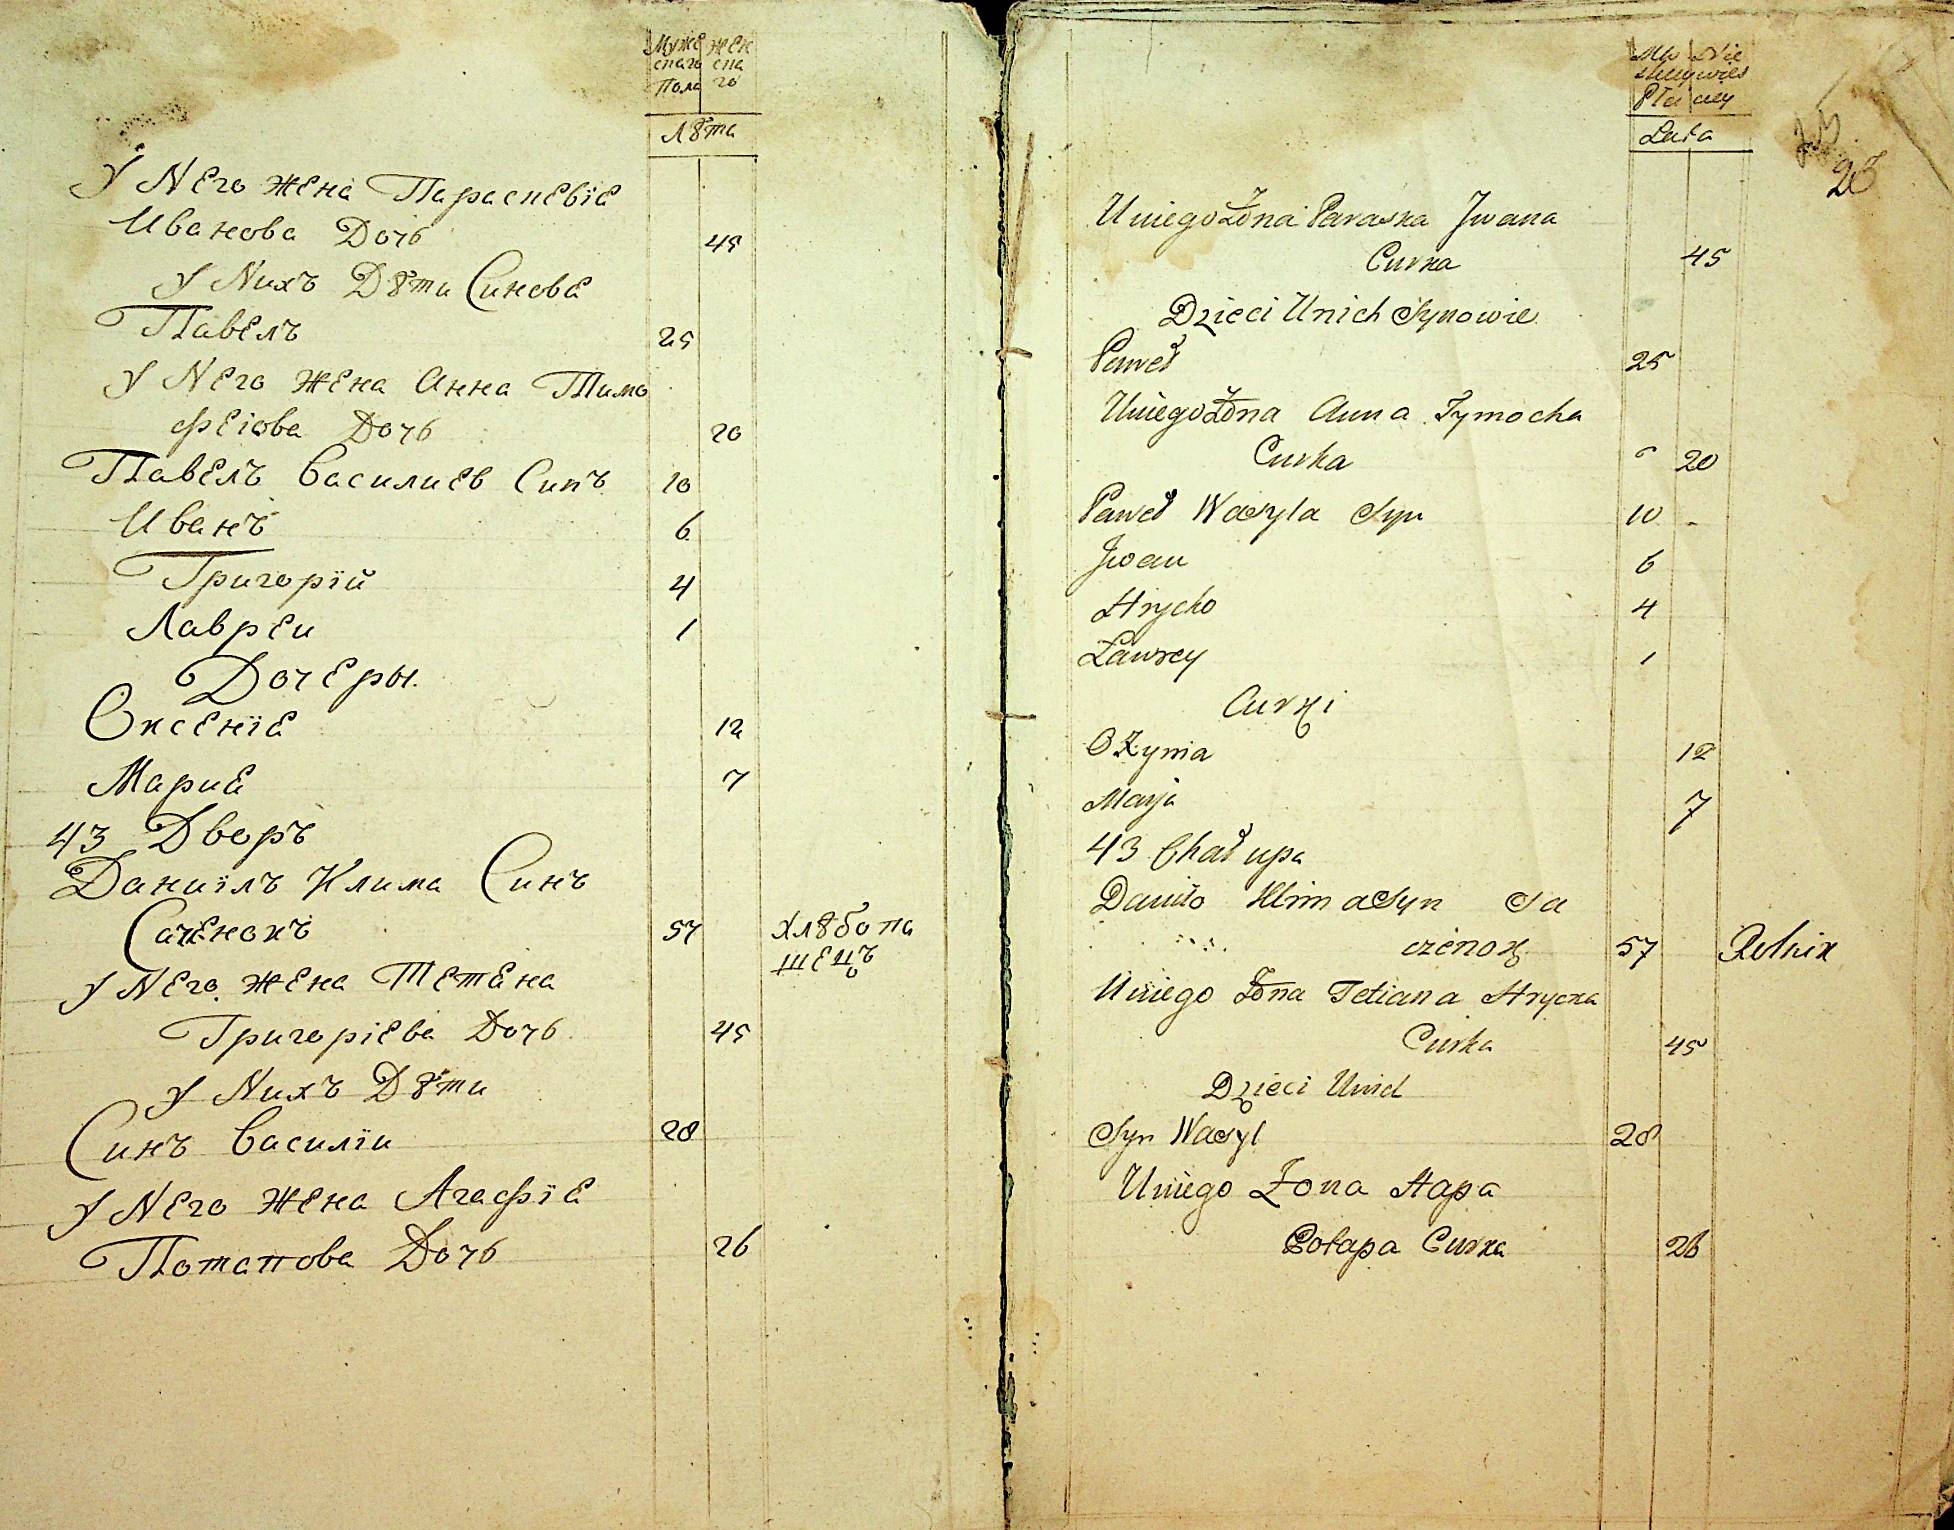 Муже жен
скаго ска
Пола го
Лѣта
У Него жена Параскевіе
Иванова Дочь 45
У Нихъ Дѣти Синове
Павелъ 25
У Него жена Анна Тимо
феіова Дочь 20
Павелъ Василиев Синъ 10
Иванъ 6
Григорїй 4
Лавреи 1
Дочеры.
Оксенїе 12
Марие 7
43 Дворъ
Даниїлъ Клима Синъ
Саченокъ 57 хлѣбопа
шецъ
У Него жена Тетена
Григоріева Дочь 45
У Нихъ Дѣти
Синъ Василїи 28
У Него жена Агафїе
Потапова Дочь 26
Lata
23
Uniego Żona Paraska Jwana
Curka 45
Dzieci Unich Synowie
Paweł 25
Uniego Żona Anna Tymocha
Curka 20
Paweł Wasyla Syn 10 -
Jwan 6
Hrycko 4
Ławrey 1
Curki
Oxynia 12
Marja 7
43 Chałupa
Daniło Klima Syn Sa
czenok 57 Rolnik
Uniego Żona Tetiana Hrycka
Curka 45
Dzieci Unich
Syn Wasyl 28
Uniego Żona Hapa
Potapa Curka 26